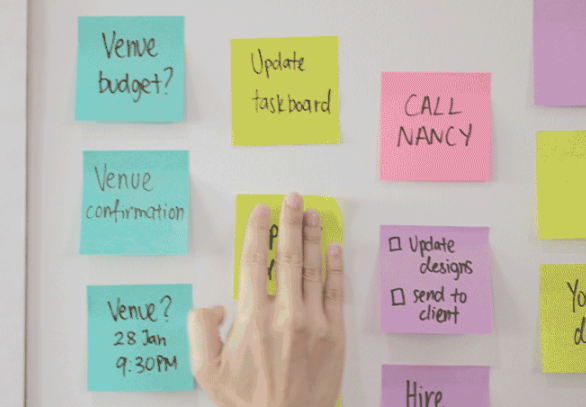 Venue
budget?
Update
taskboard
CALL
NANCY
Venue
confirmation
Update
designs
send to
client
Venue?
28 Jan
9:30PM
Hire